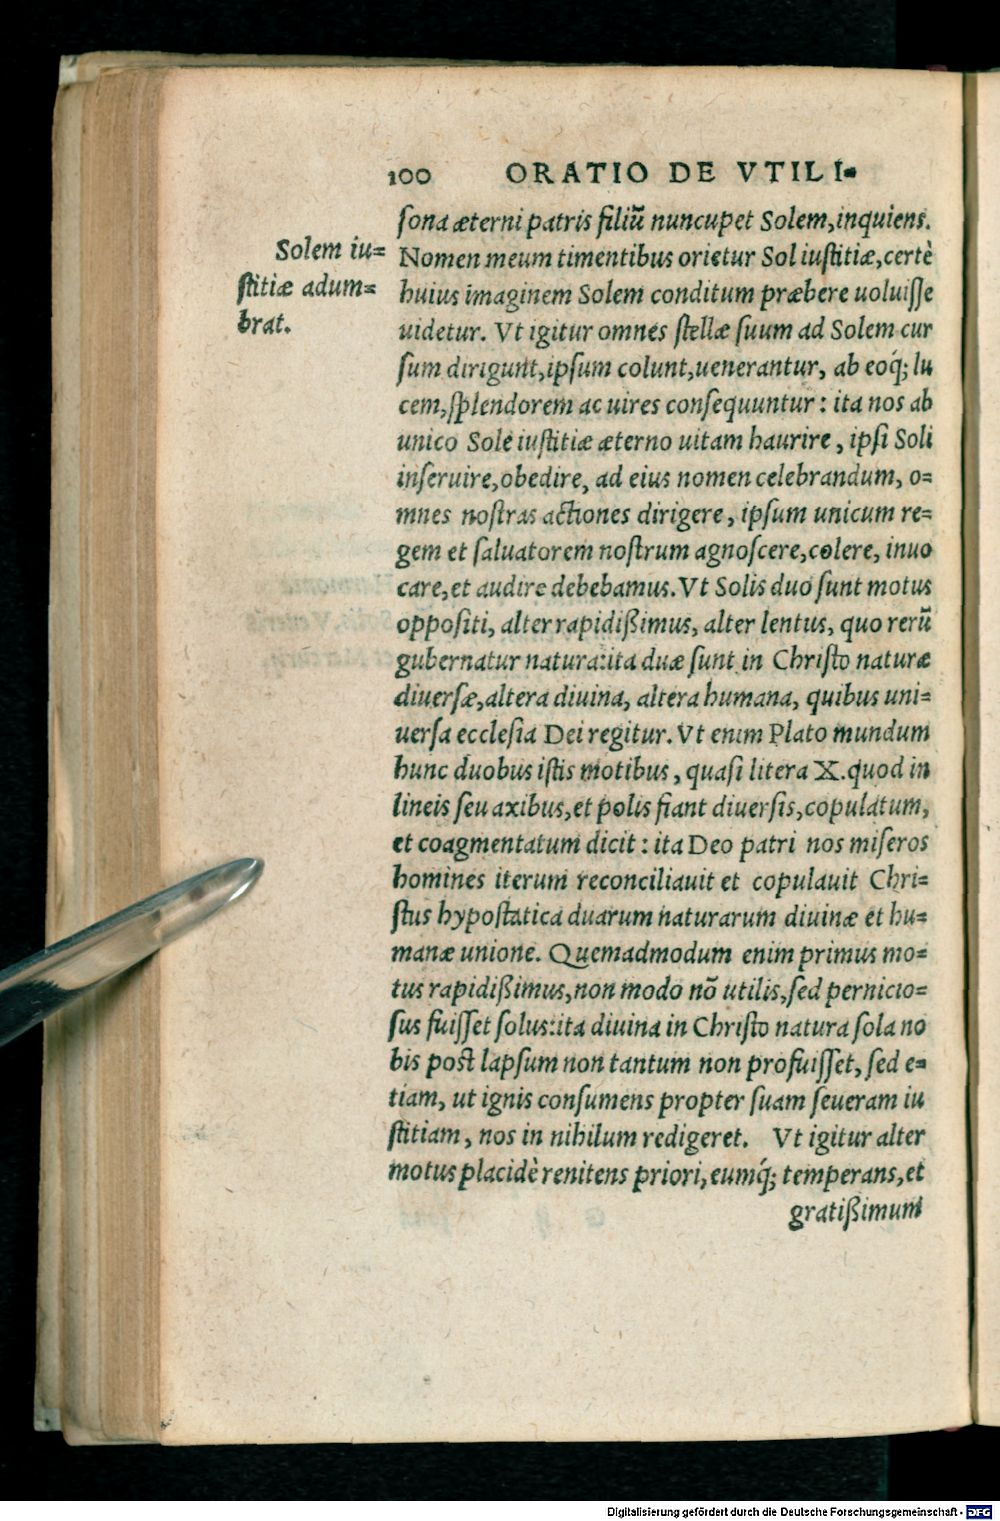 100 ORATIO DE VTILI-
Solem iu=
stitiæ adum=
brat.
sona æterni patris filiũ nuncupet Solem, inquiens.
Nomen meum timentibus orietur Sol iustitiæ, certè
huius imaginem Solem conditum præbere uoluisse
uidetur. Vt igitur omnes stellæ suum ad Solem cur
sum dirigunt, ipsum colunt, uenerantur, ab eoq́; lu
cem, splendorem ac uires consequuntur: ita nos ab
unico Sole iustitiæ æterno uitam haurire, ipsi Soli
inseruire, obedire, ad eius nomen celebrandum, o=
mnes nostras actiones dirigere, ipsum unicum re=
gem et saluatorem nostrum agnoscere, colere, inuo
care, et audire debebamus. Vt Solis duo sunt motus
oppositi, alter rapidißimus, alter lentus, quo rerũ
gubernatur natura: ita duæ sunt in Christo naturæ
diuersæ, altera diuina, altera humana, quibus uni=
uersa ecclesia Dei regitur. Vt enim Plato mundum
hunc duobus istis motibus, quasi litera X. quod in
lineis seu axibus, et polis fiant diuersis, copulatum,
et coagmentatum dicit: ita Deo patri nos miseros
homines iterum reconciliauit et copulauit Chri=
stus hypostatica duarum naturarum diuinæ et hu=
manæ unione. Quemadmodum enim primus mo=
tus rapidißimus, non modo nõ utilis, sed pernicio=
sus fuisset solus: ita diuina in Christo natura sola no
bis post lapsum non tantum non profuisset, sed e=
tiam, ut ignis consumens propter suam seueram iu
stitiam, nos in nihilum redigeret. Vt igitur alter
motus placidè renitens priori, eumq́; temperans, et
gratißimum
Digitalisierung gefördert durch die Deutsche Forschungsgemeinschaft - DFG